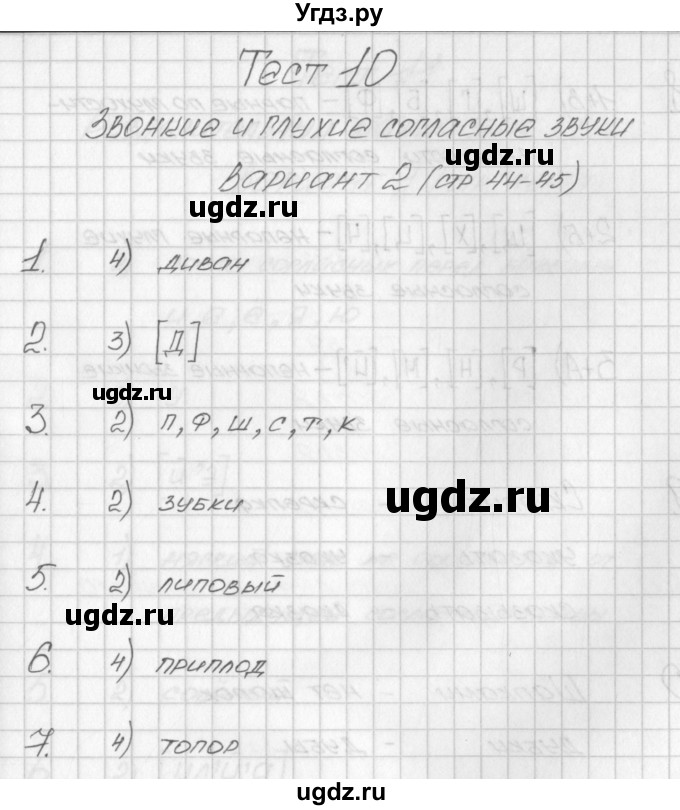 Угдз.ру
Тест 10
Звонкие и глухие согласные звуки
ugdz.ru
Вариант 2 (стр 44-45)
ugdz.ru
1. 4) диван
2. 3) [Д]
ugdz.ru
3. 2) п, ф, ш, с, т, к
ugdz.ru
4. 2) зубки
5. 2) липовый
ugdz.ru
6. 4) приплод
7. 4) топор
ugdz.ru